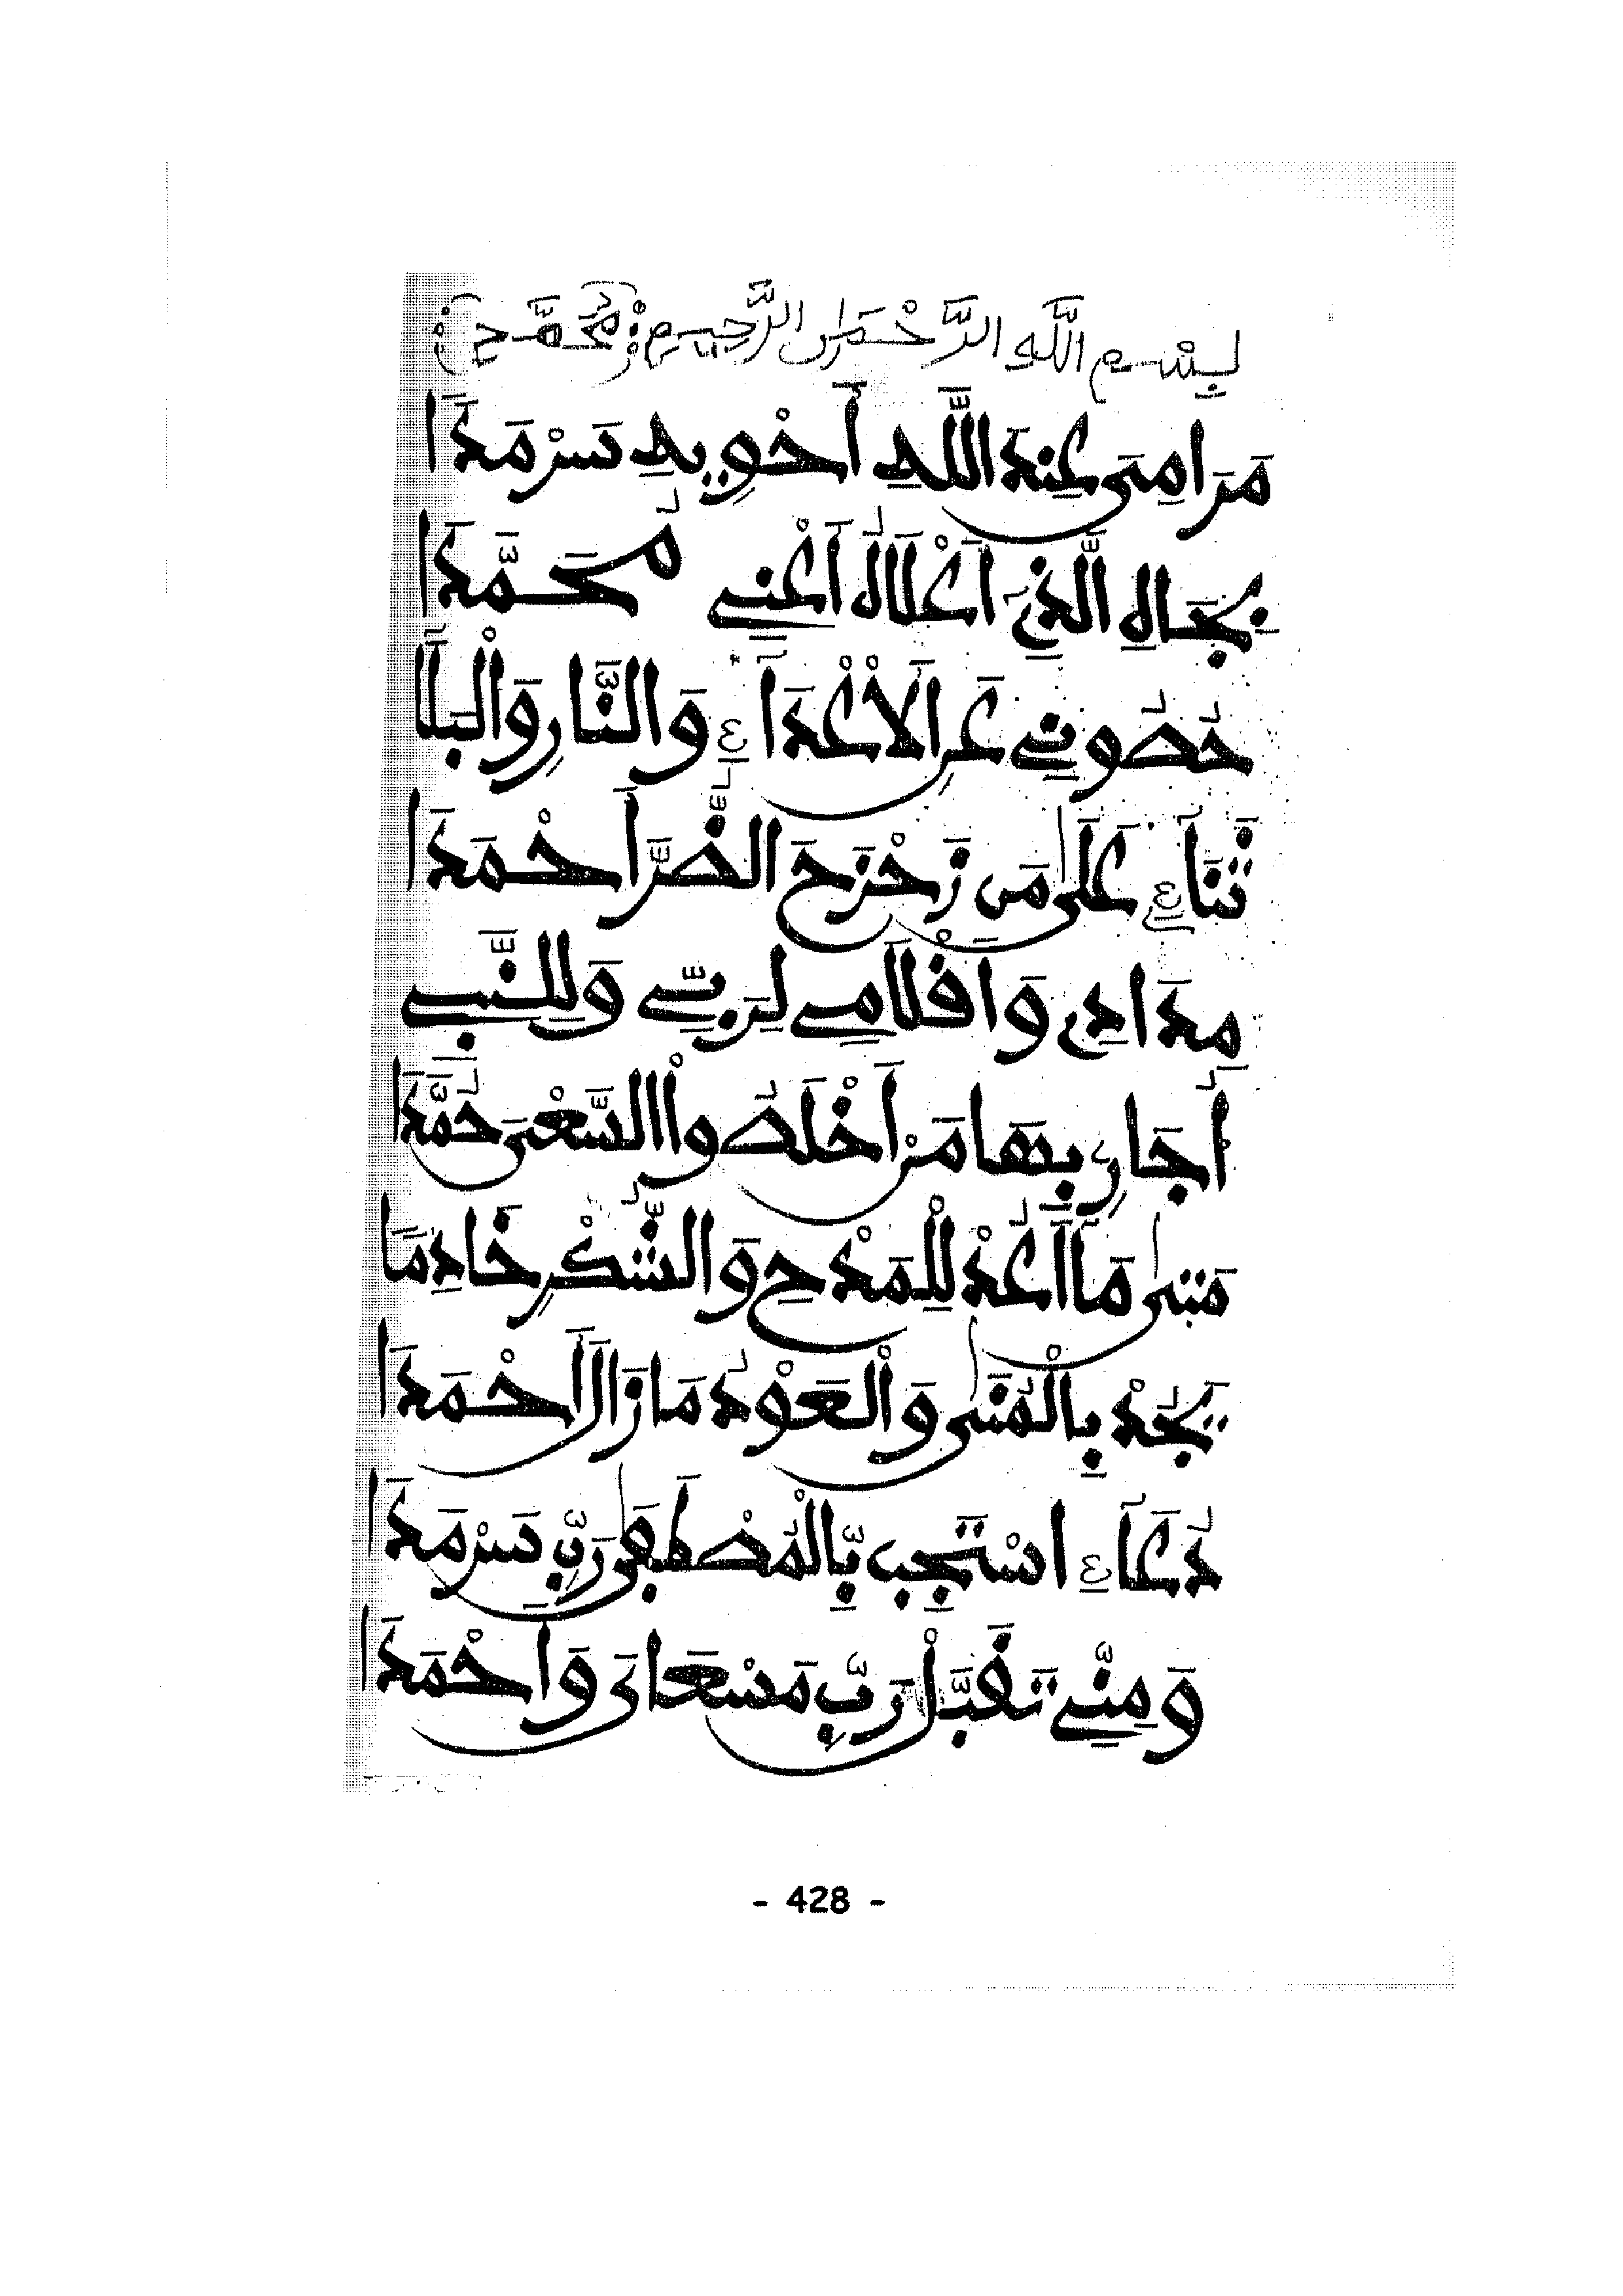 بِسْمِ اللَّهِ الرَّحْمَنِ الرَّحِيمِ مُحَمَّد
مَرَامِى عِندَ اللَّهِ أَحْوِيهِ سَرْمَدَا
بِجَاهِ الَّذِى أَعْلَاهُ أَعْنِى مُحَمَّدَا
حُصُونِى عَنِ الْأَعْدَاءِ وَالنَّارِ وَالْبَلَا
ثَنَاءِ عَلَى مَن زَحْزَحَ الضُّرَّ أَحْمَدَا
مِدَادِى وَأَقْلَامِى لِرَبِّى وَلِلنَّبِى
أُجَارِ بِهَا مَنْ أَخْلَصُواْ السَّعْىَ حُمَّدَا
مَتَى مَا أَعُدْ لِلْمَدْحِ وَالشُّكْرِ خَادِمًا
يَجُدْ بِالْمُنَى وَالْعَوْدُ مَا زَالَ أَحْمَدَا
دُعَاءِ اسْتَجِب بِالْمُصْطَفَى رَبِّ سَرْمَدَا
وَمِنِّى تَقَبَّلْ رَبِّ مَسْعَاىَ وَأَحْمَدَا
- 428 -